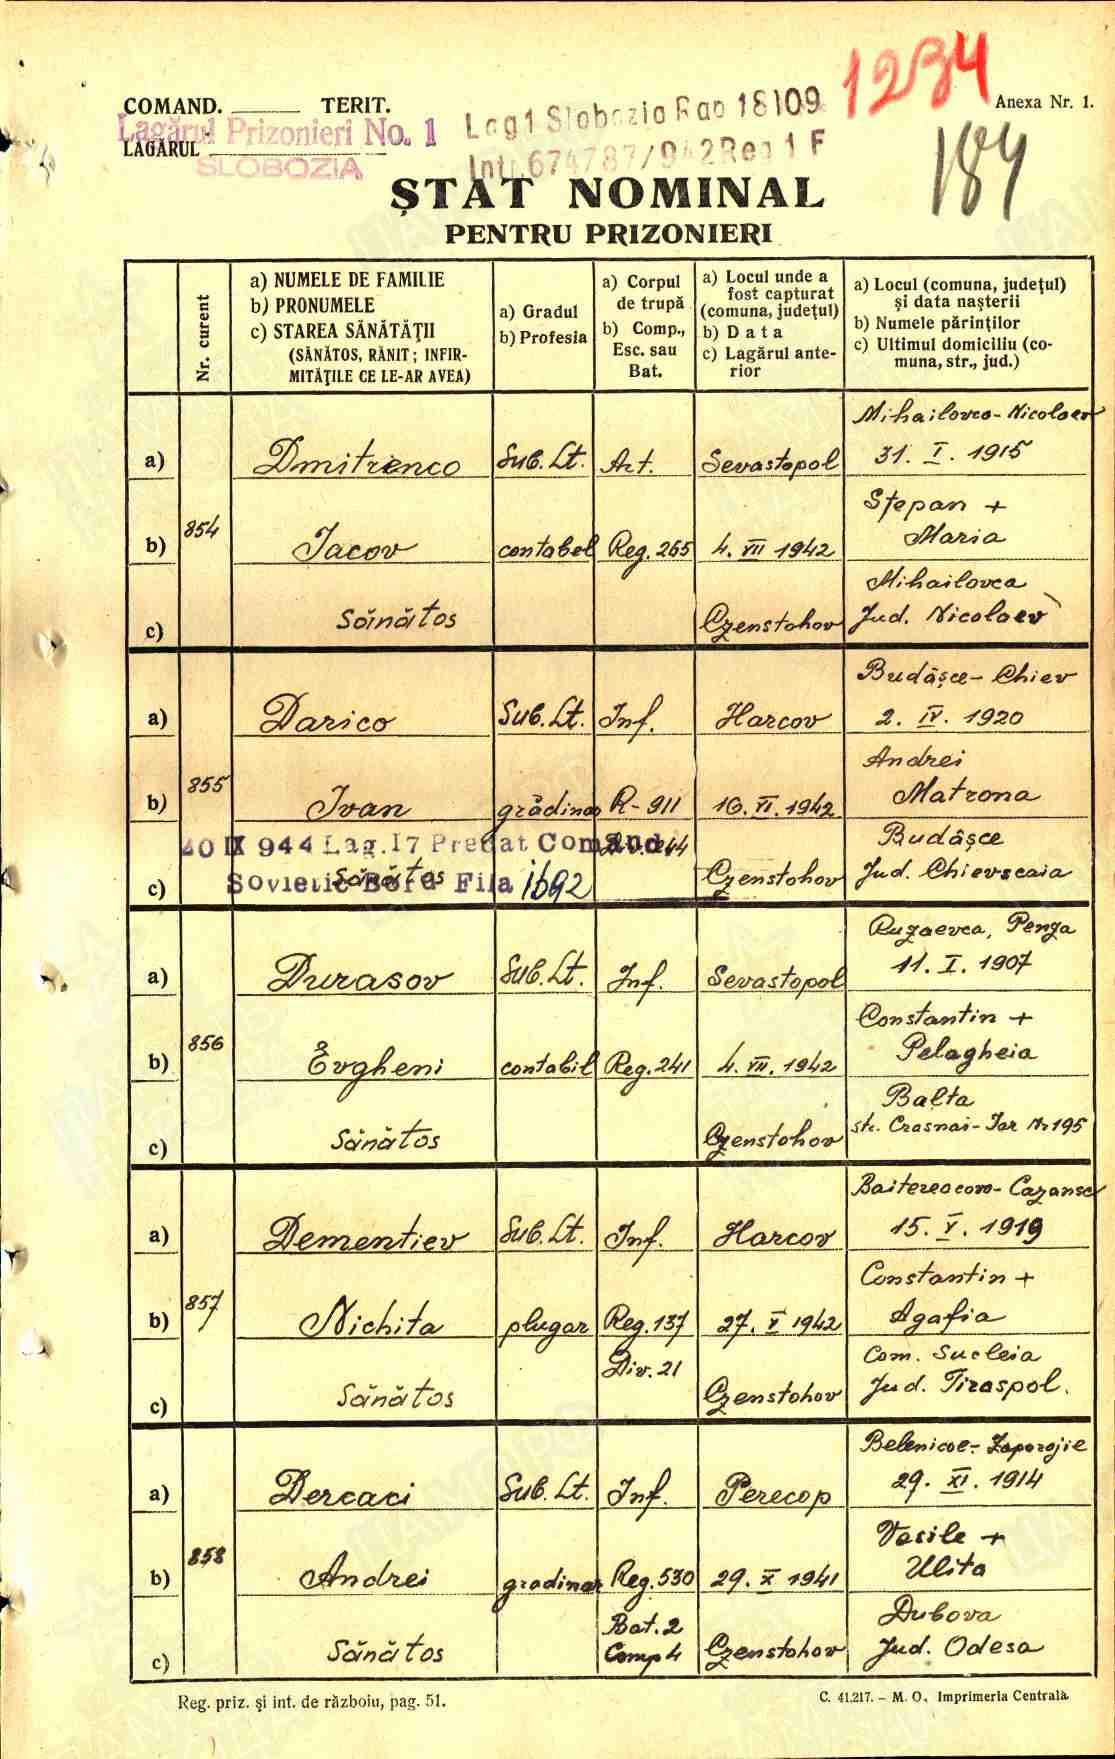 1234
COMAND. TERIT.
Anexa Nr. 1.
Lagărul Prizonieri No. 1
LAGĂRUL
SLOBOZIA
Lag 1 Slobozia Rao 18109
Intr. 674787/942 Reg 1 F
184
ȘTAT NOMINAL
PENTRU PRIZONIERI
Nr. curent
a) NUMELE DE FAMILIE
b) PRONUMELE
c) STAREA SĂNĂTĂŢII
(SĂNĂTOS, RĂNIT; INFIR-
MITĂŢILE CE LE-AR AVEA)
a) Gradul
b) Profesia
a) Corpul
de trupă
b) Comp.,
Esc. sau
Bat.
a) Locul unde a
fost capturat
(comuna, judeţul)
b) Data
c) Lagărul ante-
rior
a) Locul (comuna, judeţul)
și data nașterii
b) Numele părinţilor
c) Ultimul domiciliu (co-
muna, str., jud.)
Mihailovca - Nicolaev
a) Dmitrenco Sub. Lt. Art. Sevastopol 31. I. 1915
854
Ștepan +
b) Iacov contabel Reg. 265 4. VII 1942 Maria
Mihailovca
c) Sănătos Czenstohov Jud. Nicolaev
Budâșce - Chiev
a) Darico Sub. Lt. Inf. Harcov 2. IV. 1920
855
Andrei
b) Ivan grădinar R-911 16. VI. 1942 Matrona
20 IX 944 Lag. 17 Predat Comand.
Budâșce
c) Sănătos Czenstohov Jud. Chievscaia
Sovietic Bord Fila 1692
Ruzaevca, Penza
a) Durasov Sub. Lt. Inf. Sevastopol 11. I. 1907
856
Constantin +
b) Evgheni contabil Reg. 241 4. VII. 1942 Pelagheia
Balta
c) Sănătos Czenstohov str. Crasnai - Iar Nr 195
a) Dementiev Sub. Lt. Inf. Harcov 15. V. 1919
857
Constantin +
b) Nichita plugar Reg. 137 27. V 1942 Agafia
Div. 21 Com. Sucleia
c) Sănătos Czenstohov Jud. Tiraspol.
Belenicoe - Zaporojie
a) Dercaci Sub. Lt. Inf. Perecop 29. XI. 1914
858
Vasile +
b) Andrei gradinar Reg. 530 29. X 1941 Ulita
Bat. 2 Dubova
c) Sănătos Comp 4 Czenstohov Jud. Odesa
Reg. priz. și int. de războiu, pag. 51.
C. 41.217. - M. O., Imprimeria Centrală